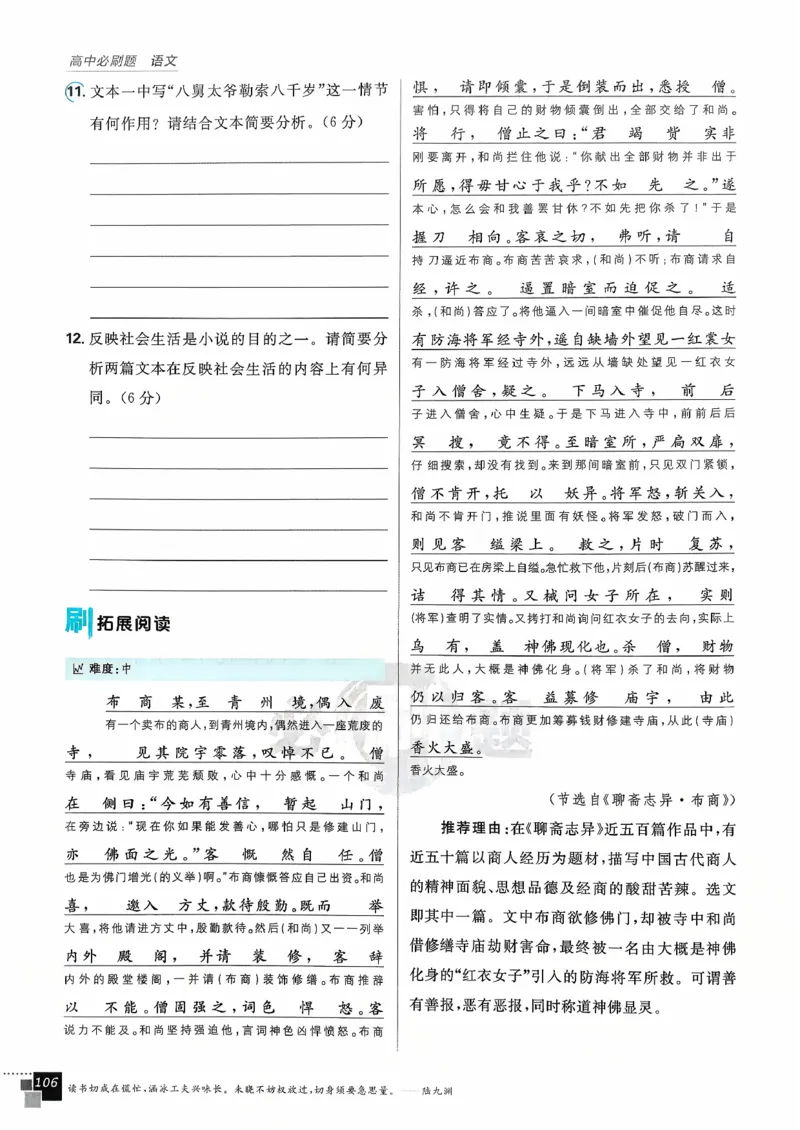 高中必刷题 语文
11. 文本一中写“八舅太爷勒索八千岁”这一情节
有何作用？请结合文本简要分析。（6分）
12. 反映社会生活是小说的目的之一。请简要分
析两篇文本在反映社会生活的内容上有何异
同。（6分）
刷 拓展阅读
难度：中
布商某，至青州境，偶入废
有一个卖布的商人，到青州境内，偶然进入一座荒废的
寺，见其院宇零落，叹悼不已。僧
寺庙，看见庙宇荒芜颓败，心中十分感慨。一个和尚
在侧曰：“今如有善信，暂起山门，
在旁边说：“现在你如果能发善心，哪怕只是修建山门，
亦佛面之光。”客慨然自任。僧
也是为佛门增光（的义举）啊。”布商慷慨答应自己出资。和尚
喜，邀入方丈，款待殷勤。既而举
大喜，将他请进方丈中，殷勤款待。然后（和尚）又一一列举
内外殿阁，并请装修，客辞
内外的殿堂楼阁，一并请（布商）装饰修缮。布商推辞
以不能。僧固强之，词色悍怒。客
说力不能及。和尚坚持强迫他，言词神色凶悍愤怒。布商
惧，请即倾囊，于是倒装而出，悉授僧。
害怕，只得将自己的财物倾囊倒出，全部交给了和尚。
将行，僧止之曰：“君竭赀实非
刚要离开，和尚拦住他说：“你献出全部财物并非出于
所愿，得毋甘心于我乎？不如先之。”遂
本心，怎么会和我善罢甘休？不如先把你杀了！”于是
握刀相向。客哀之切，弗听，请自
持刀逼近布商。布商苦苦哀求，（和尚）不听；布商请求自
经，许之。逼置暗室而迫促之。适
杀，（和尚）答应了。将他逼入一间暗室中催促他自尽。这时
有防海将军经寺外，遥自缺墙外望见一红裳女
有一防海将军经过寺外，远远从墙缺处望见一红衣女
子入僧舍，疑之。下马入寺，前后
子进入僧舍，心中生疑。于是下马进入寺中，前前后后
冥搜，竟不得。至暗室所，严扃双扉，
仔细搜索，却没有找到。来到那间暗室前，只见双门紧锁，
僧不肯开，托以妖异。将军怒，斩关入，
和尚不肯开门，推说里面有妖怪。将军发怒，破门而入，
则见客缢梁上。救之，片时复苏，
只见布商已在房梁上自缢。急忙救下他，片刻后（布商）苏醒过来，
诘得其情。又械问女子所在，实则
（将军）查明了实情。又拷打和尚询问红衣女子的去向，实际上
乌有，盖神佛现化也。杀僧，财物
并无此人，大概是神佛化身。（将军）杀了和尚，将财物
仍以归客。客益募修庙宇，由此
仍归还给布商。布商更加筹募钱财修建寺庙，从此（寺庙）
香火大盛。
香火大盛。
（节选自《聊斋志异·布商》）
推荐理由：在《聊斋志异》近五百篇作品中，有
近五十篇以商人经历为题材，描写中国古代商人
的精神面貌、思想品德及经商的酸甜苦辣。选文
即其中一篇。文中布商欲修佛门，却被寺中和尚
借修缮寺庙劫财害命，最终被一名由大概是神佛
化身的“红衣女子”引入的防海将军所救。可谓善
有善报，恶有恶报，同时称道神佛显灵。
106 读书切戒在慌忙，涵泳工夫兴味长。未晓不妨权放过，切身须要急思量。——陆九渊